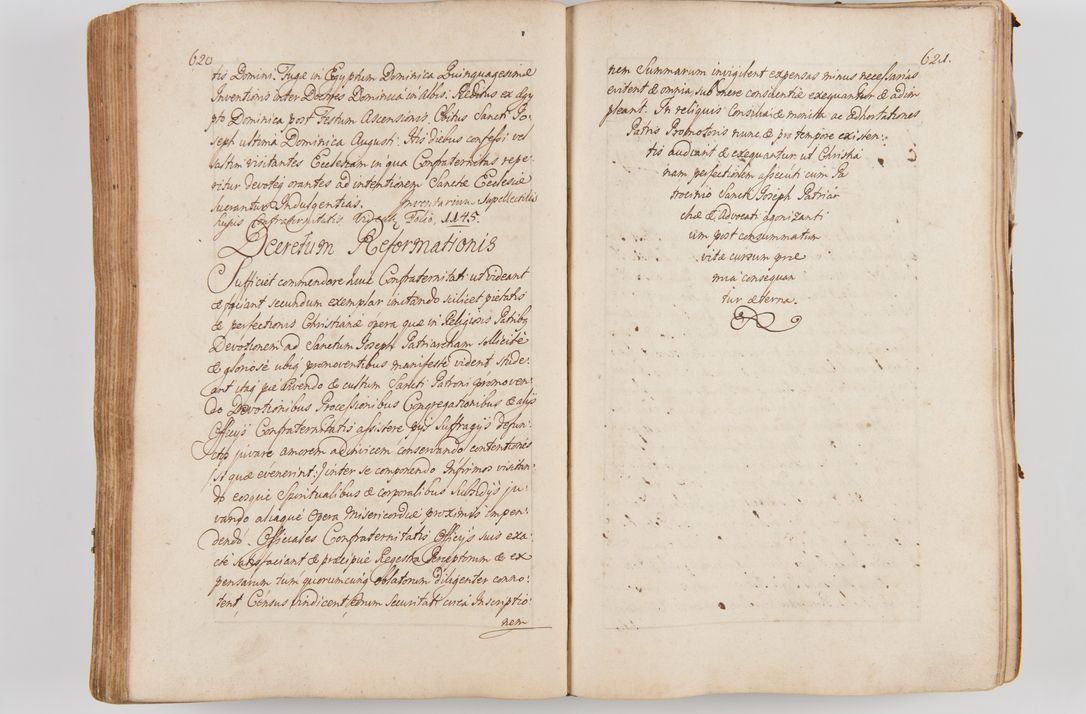 620
tis Domini. Fugæ in Egyptum Dominica Quinquagesimæ
Inventionis inter Doctores Dominica in Albis. Reditus ex Ægy
pto Dominica post Festum Ascensionis, Obitus Sancti Jo-
seph ultima Dominica Augusti. His diebus confessi vel
saltim visitantes Ecclesiam in qua Confraternitas repe-
ritur devoteq orantes ad intentionem Sanctæ Ecclesiæ
lucrantur Indulgentias. Inventarium Supellectilis
hujus Confraternitatis Folio. 1145.
Decretum Reformationis
Sufficiet commendare huic Confraternitati ut videant
& faciant secundum exemplar imitando scilicet pietatis
& perfectionis Christianæ opera quæ in Religiosis Patribq
Devotionem ad Sanctum Joseph Patriarcham sollicitè
& gloriosè ubiq promoventibus manifestè vident. Stude-
ant itaq pie vivendo & cultum Sancti Patroni promoven-
do Devotionibus Processionibus Congregationibus & alijs
Officijs Confraternitatis assistere pijs suffragijs defun-
ctos juvare amorem adinvicem conservando contentiones
/si quæ evenerint:/ inter se componendo Infirmos visitan-
do eosquè Spiritualibus & corporalibus Subsidijs ju-
vando aliaquè Opera Misericordiæ proximis impen-
dendo. Officiales Confraternitatis Officijs suis exa-
ctè satisfaciant & præcipuè Regestra Perceptorum & ex
pensarum tum quorumcunq oblatorum diligenter conno-
tent, Census vindicent, eorum securitati circa Inscriptio-
nem
621.
nem Summarum invigilent expensas minus necessarias
evitent & omnia sub onere conscientiæ exequantur & adim
pleant. In reliquis Consilia & monita ac adhortationes
Patris Promotoris nunc & pro tempore existen-
tis audiant & exequantur, ut Christia
nam perfectionem assecuti cum Pa
trocinio Sancti Joseph Patriar
chæ & Advocati agonizanti
um post consummatum
vitæ cursum præ
mia consequan
tur æterna.